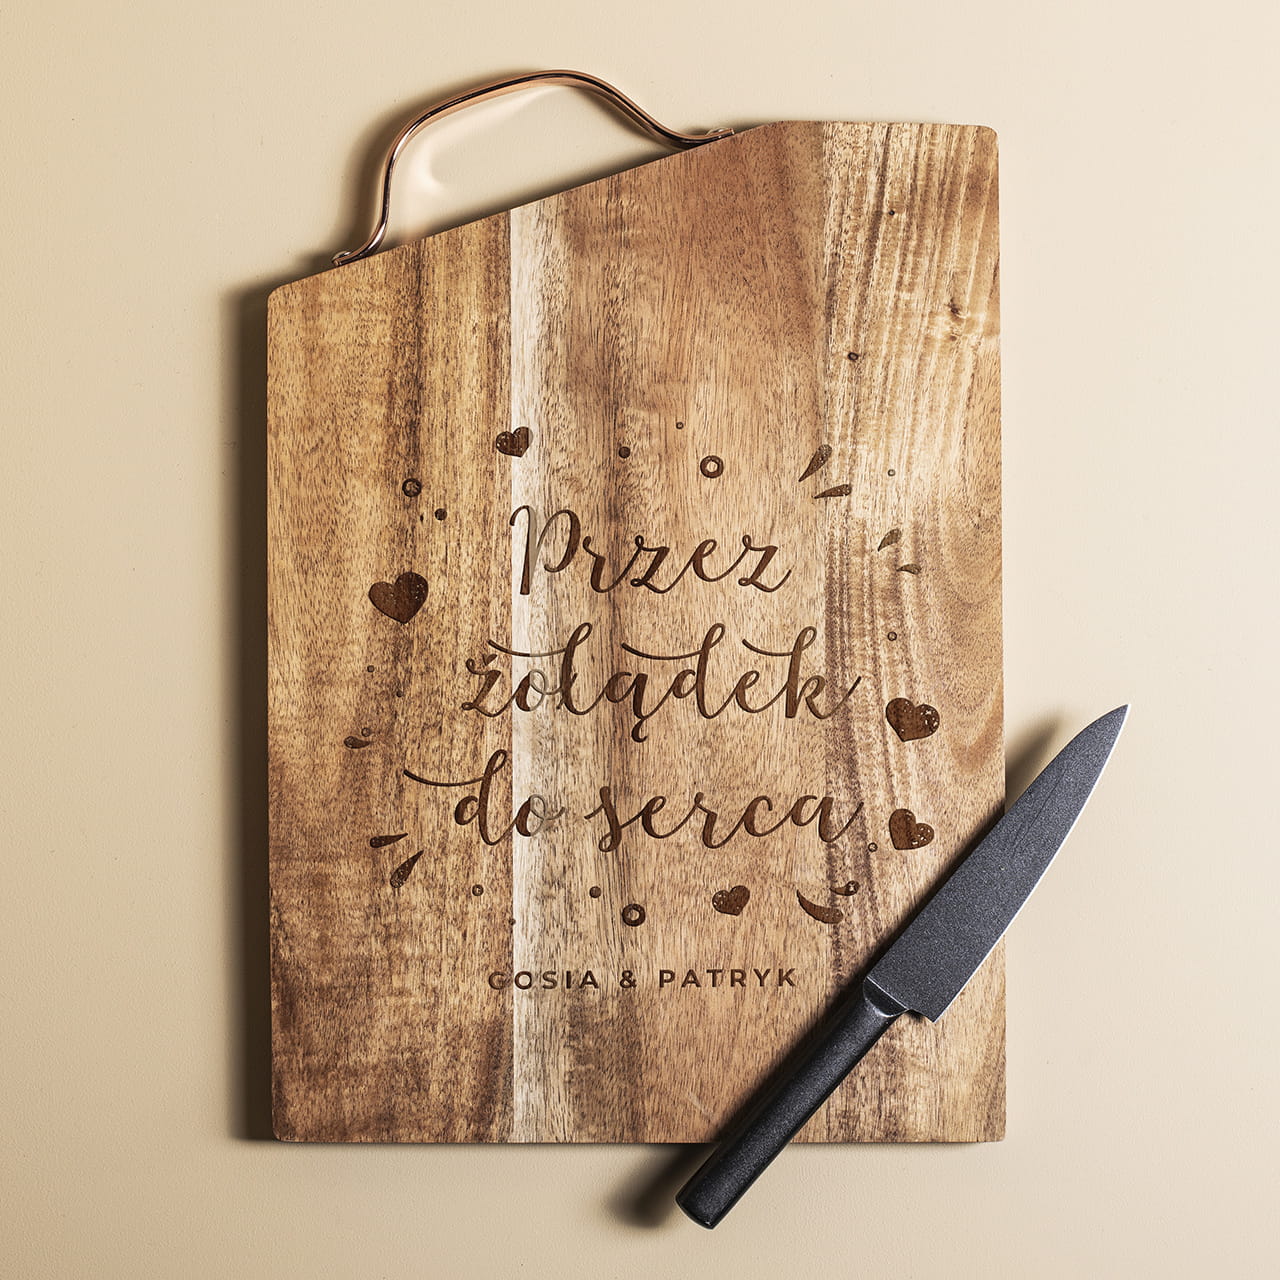 Przez
żołądek
do serca
GOSIA & PATRYK